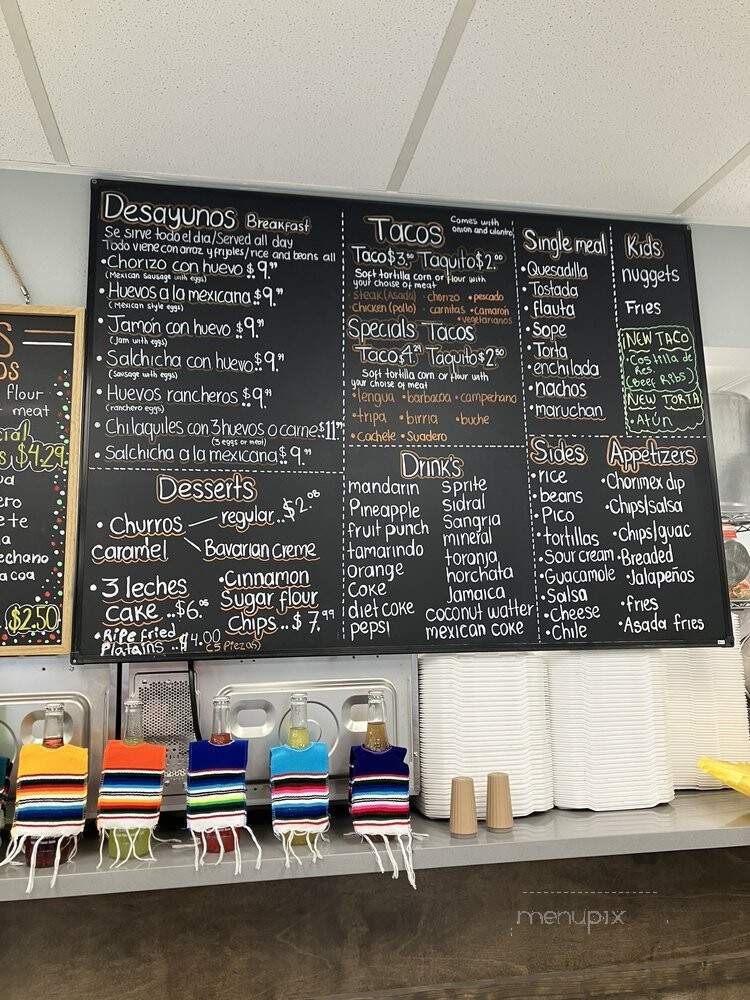 Desayunos Breakfast
Se sirve todo el dia/Served all day
Todo viene con arroz y frijoles/rice and beans all
• Chorizo con huevo $9.99
(Mexican sausage with eggs)
• Huevos a la mexicana $9.99
(Mexican style eggs)
• Jamón con huevo $9.99
(Jam with eggs)
• Salchicha con huevo $9.99
(Sausage with eggs)
• Huevos rancheros $9.99
(ranchero eggs)
• Chilaquiles con 3 huevos o carne $11.99
(3 eggs or meat)
• Salchicha a la mexicana $9.99
Desserts
• Churros
regular..$2.
caramel
Bavarian creme
• 3 leches
cake..$6.
• Cinnamon
Sugar flour
chips..$7.99
• Ripe fried
Platains..$4.00
(5 Piezas)
Tacos
Comes with
onion and cilantro
Taco $3. Taquito $2.00
Soft tortilla corn or flour with
your choise of meat
• steak (Asada) • chorizo • pescado
Chicken (pollo) • carnitas • camaron
• vegetarianos
Specials Tacos
Taco $4.29 Taquito $2.50
Soft tortilla corn or flour with
your choise of meat
• lengua • barbacoa • campechano
• tripa • birria • buche
• cachete • Suadero
Drink's
mandarin
Pineapple
fruit punch
tamarindo
orange
coke
diet coke
pepsi
Sprite
Sidral
Sangria
mineral
toronja
horchata
Jamaica
coconut watter
mexican coke
Single meal
• Quesadilla
• Tostada
• flauta
• Sope
• Torta
• enchilada
• nachos
• maruchan
Kids
nuggets
Fries
NEW TACO
Costilla de
Res.
(Beef Ribs)
NEW TORTA
• Atún
Sides
• rice
• beans
• Pico
• tortillas
• Sour cream
• Guacamole
• Salsa
• Cheese
• Chile
Appetizers
• Chorinex dip
• Chips/salsa
• chips/guac
• Breaded
• Jalapeños
• fries
• Asada fries
flour
meat
$4.29
$2.50
menupix